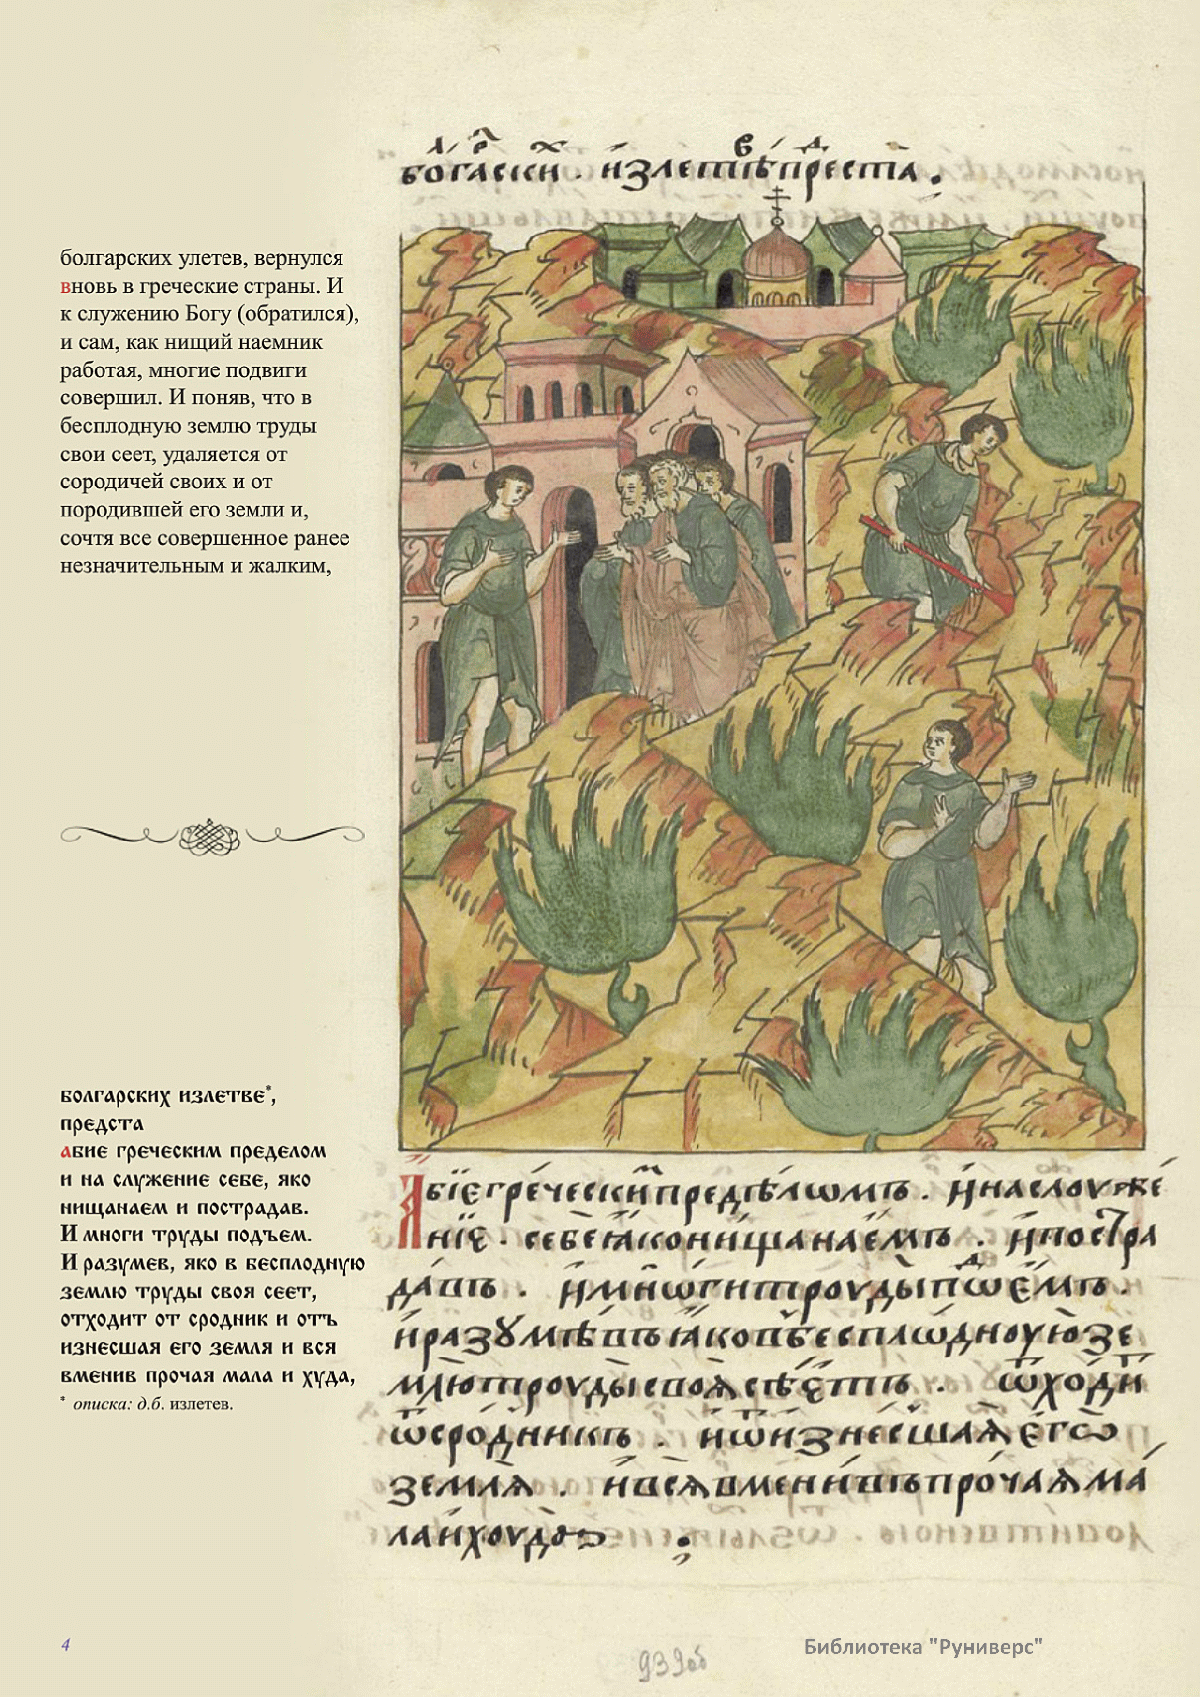 болгарских улетев, вернулся
вновь в греческие страны. И
к служению Богу (обратился),
и сам, как нищий наемник
работая, многие подвиги
совершил. И поняв, что в
бесплодную землю труды
свои сеет, удаляется от
сородичей своих и от
породившей его земли и,
сочтя все совершенное ранее
незначительным и жалким,
болгарских излетве*,
предста
абие греческим пределом
и на служение себе, яко
нищанаем и пострадав.
И многи труды подъем.
И разумев, яко в бесплодную
землю труды своя сеет,
отходит от сродник и отъ
изнесшая его земля и вся
вменив прочая мала и худа,
* описка: д.б. излетев.
4
боⷧ҇гаⷬ҇скиⷯ . излетвѣ преⷣста .
Абїе греческиⷨ предѣлѡмъ . и на слꙋже
нїе . себе ꙗко нищанаемъ . и постра
давъ . и мнѡги трꙋды пⷣѡемъ .
и разꙋмѣвъ ꙗко въ бесплѡднꙋю зе
млю трꙋды своѧ сѣетъ . ѿходиⷮ
ѿ сродникъ . и ѿ изнесшаѧ его
землѧ . и всѧ вменивъ прочаѧ ма
ла и хꙋда
939об
Библиотека "Руниверс"